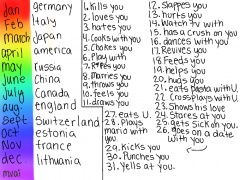 jan
Feb
march
april
may
june
July
aug
sept
oct
nov
dec
germany
Italy
Japan
america
russia
China
Canada
england
Switzerland
estonia
france
lithuania
1. Kills you
2. loves you
3. hates you
4. Cooks with you
5. Chokes you
6. Play with
7. Rapes you
8. Marries you
9. throws you
10. feels you
11. draws you
12. Slappes you
13. hurts you
14. Watch tv with
15. has a crush on you
16. dances with you
17. Revives you
18. Feeds you
19. helps you
20. hugs you
21. eats pasta with U.
22. Crossplays with U.
23. Shows his love
24. Stares at you
25. gets sick of you
26. goes on a date
with you
27. eats U.
28. Plays
mario with
you
29. Kicks you
30. Punches you
31. Yells at you.